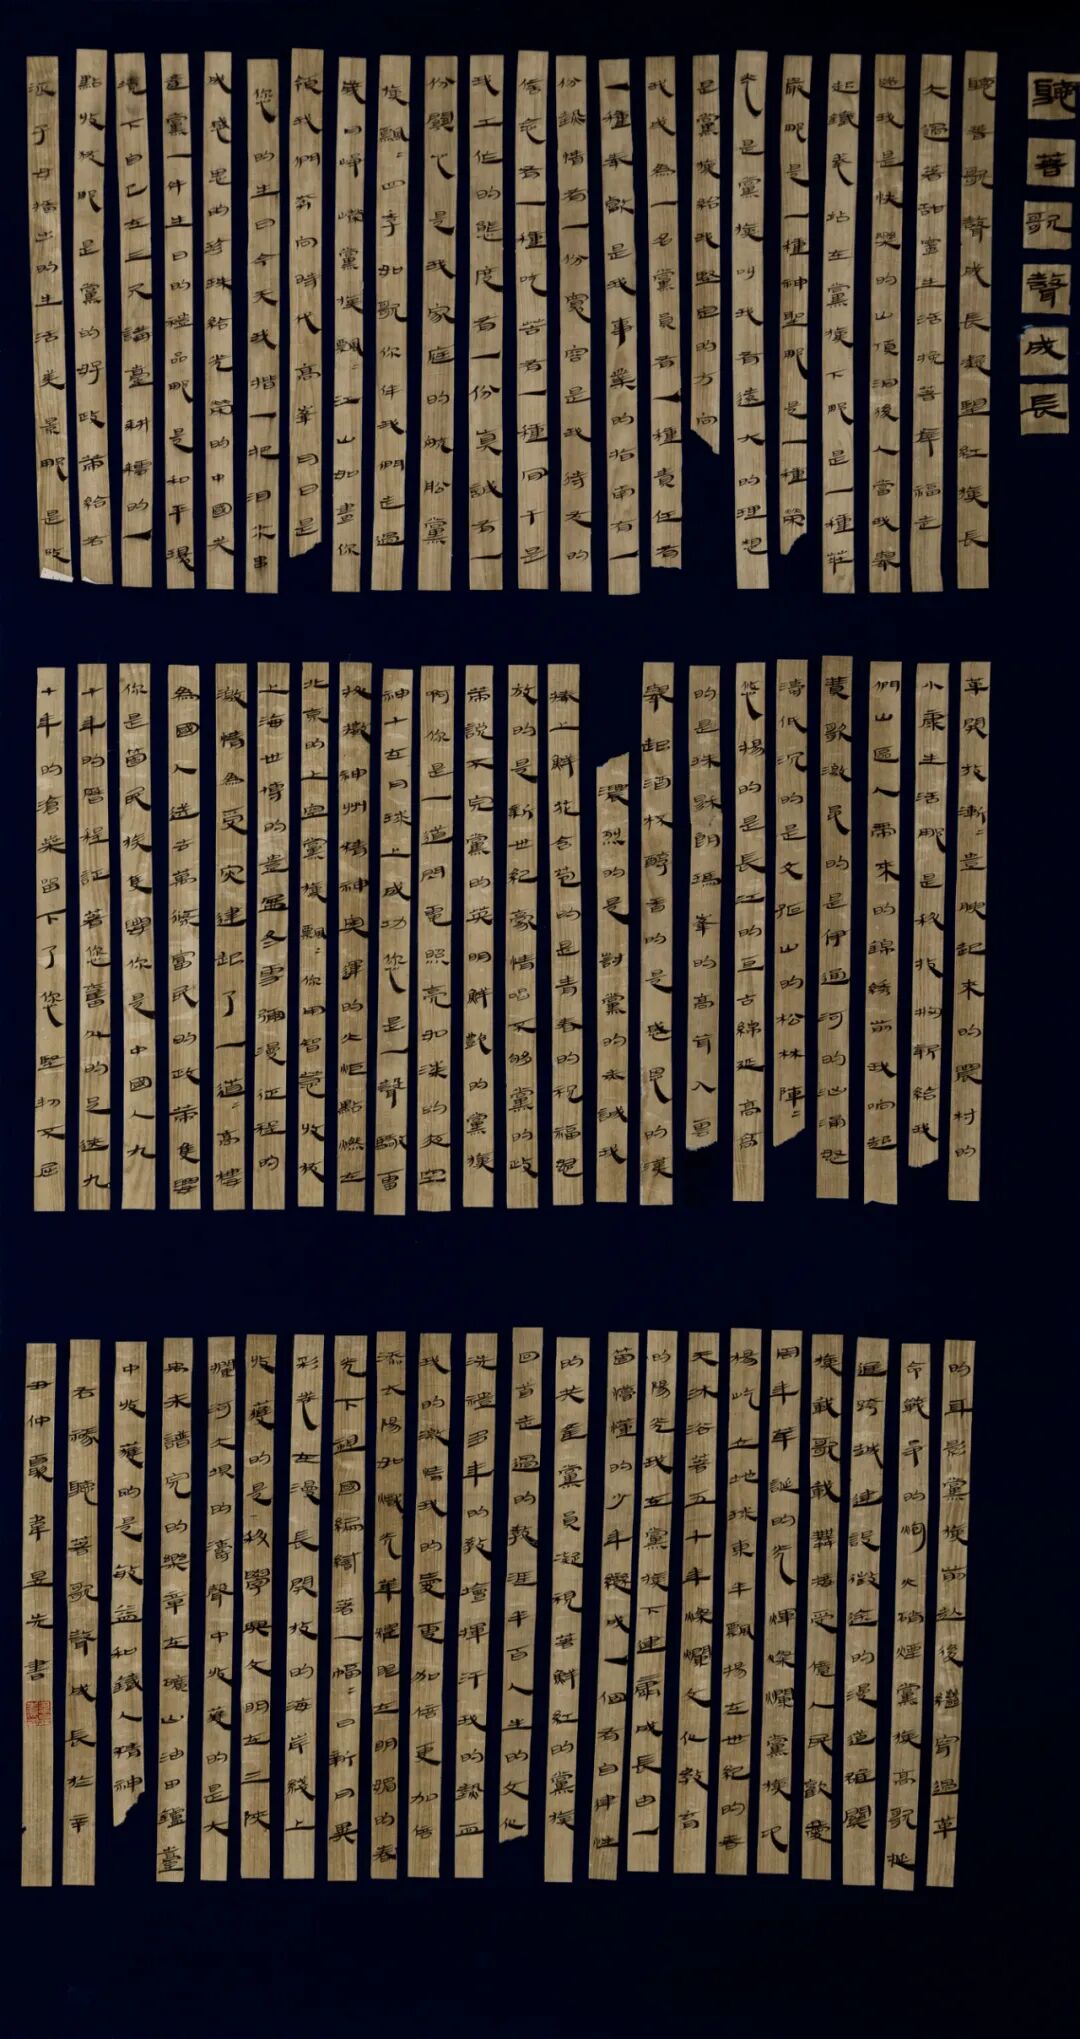 聽著歌聲成長
聽著歌聲成長凝望紅旗長
大過著甜蜜生活挽著幸福走
過我是快樂的山頂洞後人當我舉
起鐵拳站在黨旗下那是一種莊
嚴那是一種神聖那是一種榮
光是黨旗叫我有遠大的理想
是黨旗給我堅定的方向
我成為一名黨員有一種責任有
一種奉獻是我事業的指南有一
份熱情有一份寬容是我待人的
信念有一種吃苦有一種同干是
我工作的態度有一份真誠有一
份關心是我家庭的黨
旗飄飄四季如歌你伴我們走過
歲月崢嶸黨旗飄飄江山如畫你
領我們奔向時代高峯今日是
您的生日今天我揩一把泪水串
成感恩的珍珠給光榮的中國共
產黨一件生日的禮品那是和平環
境下自己在三尺講臺耕耘的一
點收穫那是黨的好政策給老
派子女描出的生活美景那是改
革開放漸漸豐腴起來的農村的
小康生活那是給我
們山區人帶來的錦綉前我响起
贊歌激昂的是伊通河的汹涌怒
濤低沉的是山的松林陣陣
悠揚的是長江的亘古綿延高高
的是珠穆朗瑪峯的高聳入雲
舉起酒杯醇香的是感恩的漢
濃烈的是對黨的赤誠我
捧上鮮花含苞的是青春的祝福怒
放的是新世紀豪情唱不够黨的政
策說不完黨的英明鮮艷的黨旗
啊你是一道閃電照亮如漆的夜空
神十在月球上成功您是一聲驚雷
振撼神州精神奧運的火炬點燃在
北京的上空黨旗飄飄你用智慧收放
上海世博的豐盈冬雪彌漫征程的
激情為受灾建起了一道道高樓
為國人送去萬條富民的政策隻要
你是箇民族隻學你是中國人九
十年的歷程証著您奮鬥的足迹九
十年的滄桑留下了您堅韌不屈
的影黨旗前赴後繼穿過革
命戰爭的炮火硝煙黨旗高歌挺
進跨越建設徵途的漫道雄關
旗載歌載舞播受億人民歡愛
周年華誕的光輝燦爛黨旗
楊屹立地球東半飄揚在世紀的春
天沐浴著五十年燦爛文化教育
的陽光我在黨旗下成長由一
箇懵懂的少年變成一個有自律性
的共產黨員凝視著鮮紅的黨旗
回首走過的教涯半百人生的文化
洗禮多年的教壇揮汗我的熱血
我的激情我的愛更加倍更加倍
添太陽如熾光華耀眼在明媚的春
光下祖國編織著一幅幅日新月異
彩卷在漫長開放的海岸綫上
收穫的是科學與文明在三陝
攔河大垻的濤聲中收穫的是大
未譜完的樂章在礦山油田鑪臺
中收穫的是效益和鐵人精神
右稼聽著歌聲成長於辛
丑仲夏韋昱先書